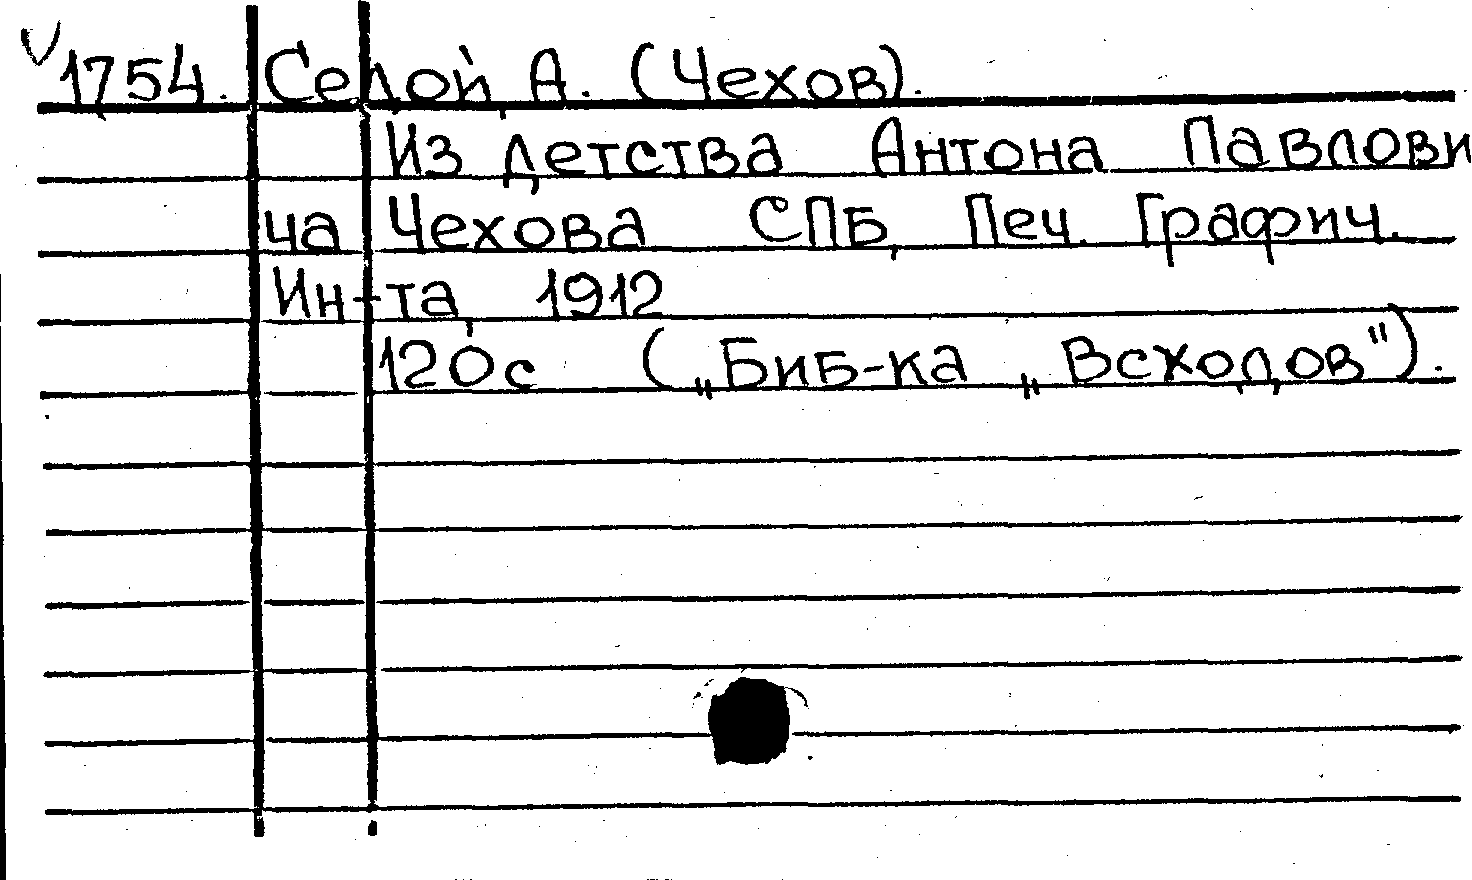 1754. Седой, А. (Чехов).
Из детства Антона Павлови
ча Чехова СПБ, Печ. Графич.
Ин-та, 1912
120с („Биб-ка „Всходов").